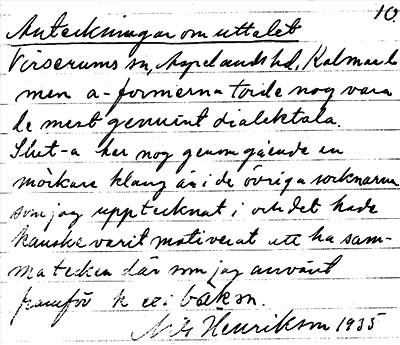 10
Anteckningar om uttalet
Virserums sn, Aspelands hd, Kalmar l.
men a-formerna torde nog vara
de mest genuint dialektala.
Slut-a har nog genomgående en
mörkare klang än i de övriga socknarna
som jag upptecknat i och det hade
kanske varit motiverat att ha sam-
ma tecken där som jag använt
framför k ex i bakon.
Nils Henrikson 1935